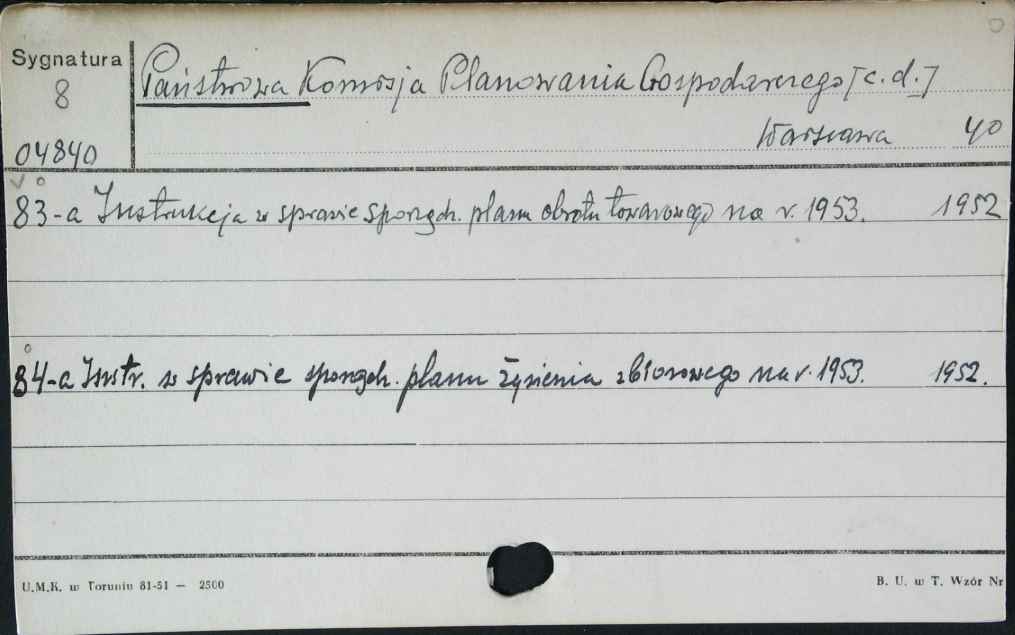 Sygnatura
8
04840
Państwowa Komisja Planowania Gospodarczego [c. d.]
Warszawa 40
83-a Instrukcja w sprawie sporządz. planu obrotu towarowego na r. 1953. 1952
84-a Instr. w sprawie sporządz. planu żywienia zbiorowego na r. 1953. 1952.
U.M.K. w Toruniu 81-51 — 2500
B. U. w T. Wzór Nr